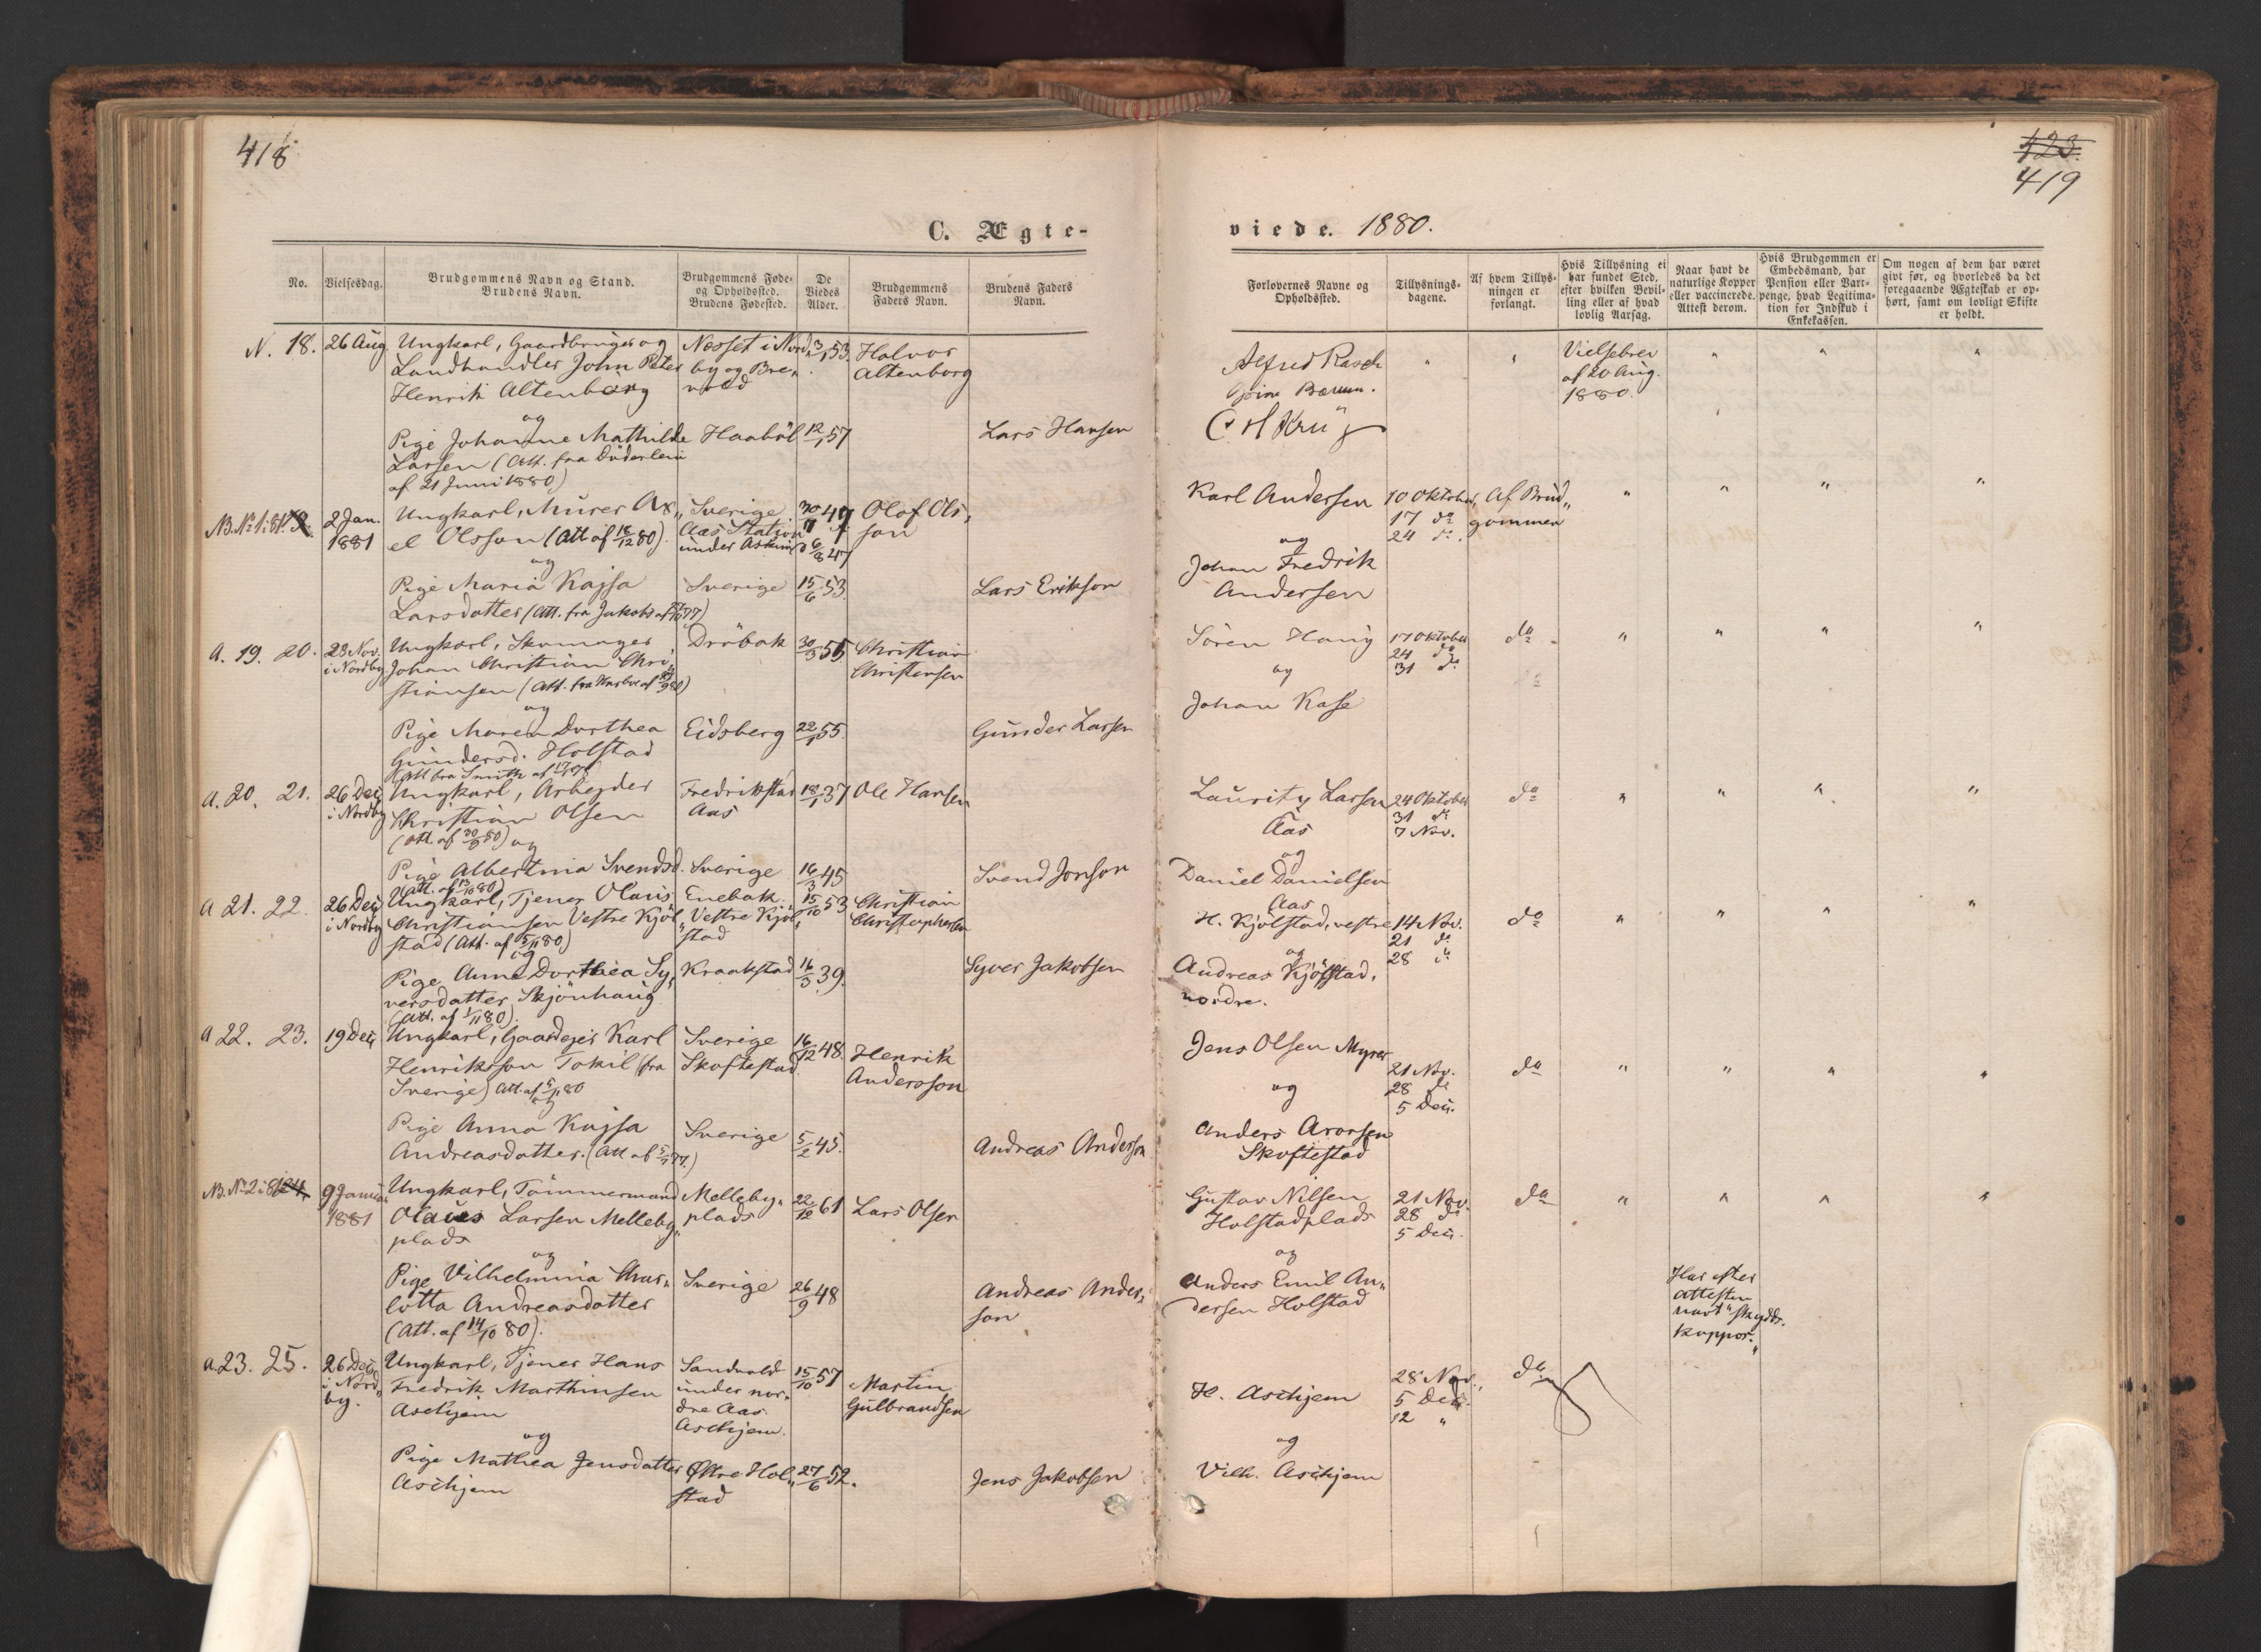 418
C. Ægte-
No.
Vielsesdag.
Brudgommens Navn og Stand.
Brudens Navn.
Brudgommens Føde-
og Opholdssted.
Brudens Fødested.
De
Viedes
Alder.
Brudgommens
Faders Navn.
Brudens Faders
Navn.
N. 18. 26 Aug. Ungkarl, Gaardbruger og Nesset i Nord- 53 Halvor
Landhandler John Peter by og Bre- Altenborg
Henrik Altenborg
og
Pige Johanne Mathilde Haabøl 12/1 57 Lars Hansen
Larsen (Att. fra Düderlein
af 21 Juni 1880)
NB. No 1 i 81 2 Jan. Ungkarl, Murer Ax- Sverige Olof Ols-
1881 el Olsson (Att af 18/12 80). Aas Station son
under Askim 6/8 47
og
Pige Maria Kajsa Sverige 15/6 53. Lars Erikson
Larsdatter (Att. fra Jakobs af 77)
A. 19. 20. 23 Nov. Ungkarl, Skomager, Drøbak 30/3 55 Christian
i Nordby Johan Christian Chri- Christensen
stiansen (Att. fra
og
Pige Maren Dorthea Eidsberg 22/1 55. Gunder Larsen
Gundersd. Holstad
(Att fra Smith af
A. 20. 21. 26 Dec. Ungkarl, Arbejder Fredrikstad 18/1 37 Ole Hansen
i Nordby Christian Olsen Aas
(Att. af 30/9 80) og
Pige Albertina Svendsd. Sverige 16/3 45 Svend Jonson
(Att. af 13/10 80)
A 21. 22. 26 Dec. Ungkarl, Tjener Olaus Enebak 15/10 53 Christian
i Nordby Christiansen Vestre Kjøl- Vestre Kjøl- Christophersen
stad (Att. af 5/11 80) stad
og
Pige Anne Dorthea Sy- Kraakstad 16/3 39. Syver Jakobsen
versdatter Skjønhaug
(Att. af 1/11 80).
A 22. 23. 19 Dec. Ungkarl, Gaardejer Karl Sverige 16/12 48. Henrik
Henriksson Tokil (fra Skoftestad Andersson
Sverige) Att. af 5/11 80
og
Pige Anna Kajsa Sverige 5/2 45. Andreas Anderson
Andreasdatter. (Att af 77.)
NB. No 2 i 81 24. 9 Januar Ungkarl, Tømmermand Melleby- 22/12 61 Lars Olsen
1881 Olaus Larsen Melleby- plads
plads
og
Pige Vilhelmina Char- Sverige 26/9 48 Andreas Ander-
lotta Andreasdatter son
(Att. af 14/10 80).
A. 23. 25. 26 Dec. Ungkarl, Tjener Hans Sandvold 15/10 57 Martin
i Nord- Fredrik Marthinsen under nor- Gulbrandsen
by. Aschjem dre Aas.
Aschjem.
og
Pige Mathea Jensdatter Østre Hol- 27/6 52. Jens Jakobsen
Aschjem stad
423.
419
viede. 1880.
Forlovernes Navne og
Opholdssted.
Tillysnings-
dagene.
Af hvem Tillys-
ningen er
forlangt.
Hvis Tillysning ei
har fundet Sted,
efter hvilken Bevil-
ling eller af hvad
lovlig Aarsag.
Naar havt de
naturlige Kopper
eller vaccinerede.
Attest derom.
Hvis Brudgommen er
Embedsmand, har
Pension eller Vart-
penge, hvad Legitima-
tion for Indskud i
Enkekassen.
Om nogen af dem har været
givt før, og hvorledes da det
foregaaende Ægteskab er op-
hørt, samt om lovligt Skifte
er holdt.
Alfred Rasch " " Vielsebrev " " "
Bærum. af 20 Aug.
1880.
Karl Andersen 10 Oktober, Af Brud- " " " "
17 do gommen
og 24 do.
Johan Fredrik
Andersen
Søren Haug 17 Oktober do " " " "
24 do
og 31 do
Johan Kase
Lauritz Larsen 24 Oktober do " " " "
Aas 31 do
7 Nov.
og
Daniel Danielsen
Aas
H. Kjølstad, vestre 14 Nov. do " " " "
21 do
og 28 do
Andreas Kjølstad,
nordre.
Jens Olsen Myrer
21 Nov. do " " " "
og 28 do
5 Dec.
Anders Aronsen
Skoftestad
Gustav Nilsen 21 Nov. do " " " "
Holstadplads 28 do
5 Dec.
og
Anders Emil An-
dersen Holstad
Har efter
Attesten
havt "skydds-
koppor."
28 Nov. do
H. Aschjem 5 Dec.
12 "
og
Vilh. Aschjem